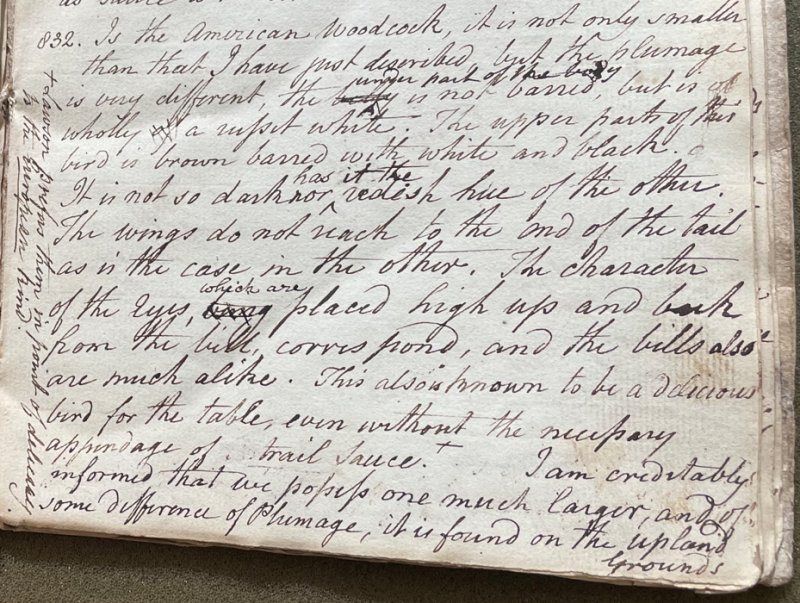 832. Is the American Woodcock, it is not only smaller
than that I have just described, but the plumage
under part of the body
is very different, the belly is not barred, but is of
wholly a rufset white. The upper parts of this
bird is brown barred with white and black.
has it the
It is not so dark nor redish hue of the other.
The wings do not reach to the end of the tail
as is the case in the other. The character
which are
of the Eyes, being placed high up and back
from the bill, correspond, and the bills also
are much alike. This also is known to be a delicious
bird for the table, even without the necefsary
appendage of trail sauce. + I am creditably
informed that we pofsefs one much larger, and of
some difference of Plumage, it is found on the upland
Grounds
+ Lawson prefers them in point of delicacy
to the European kind.